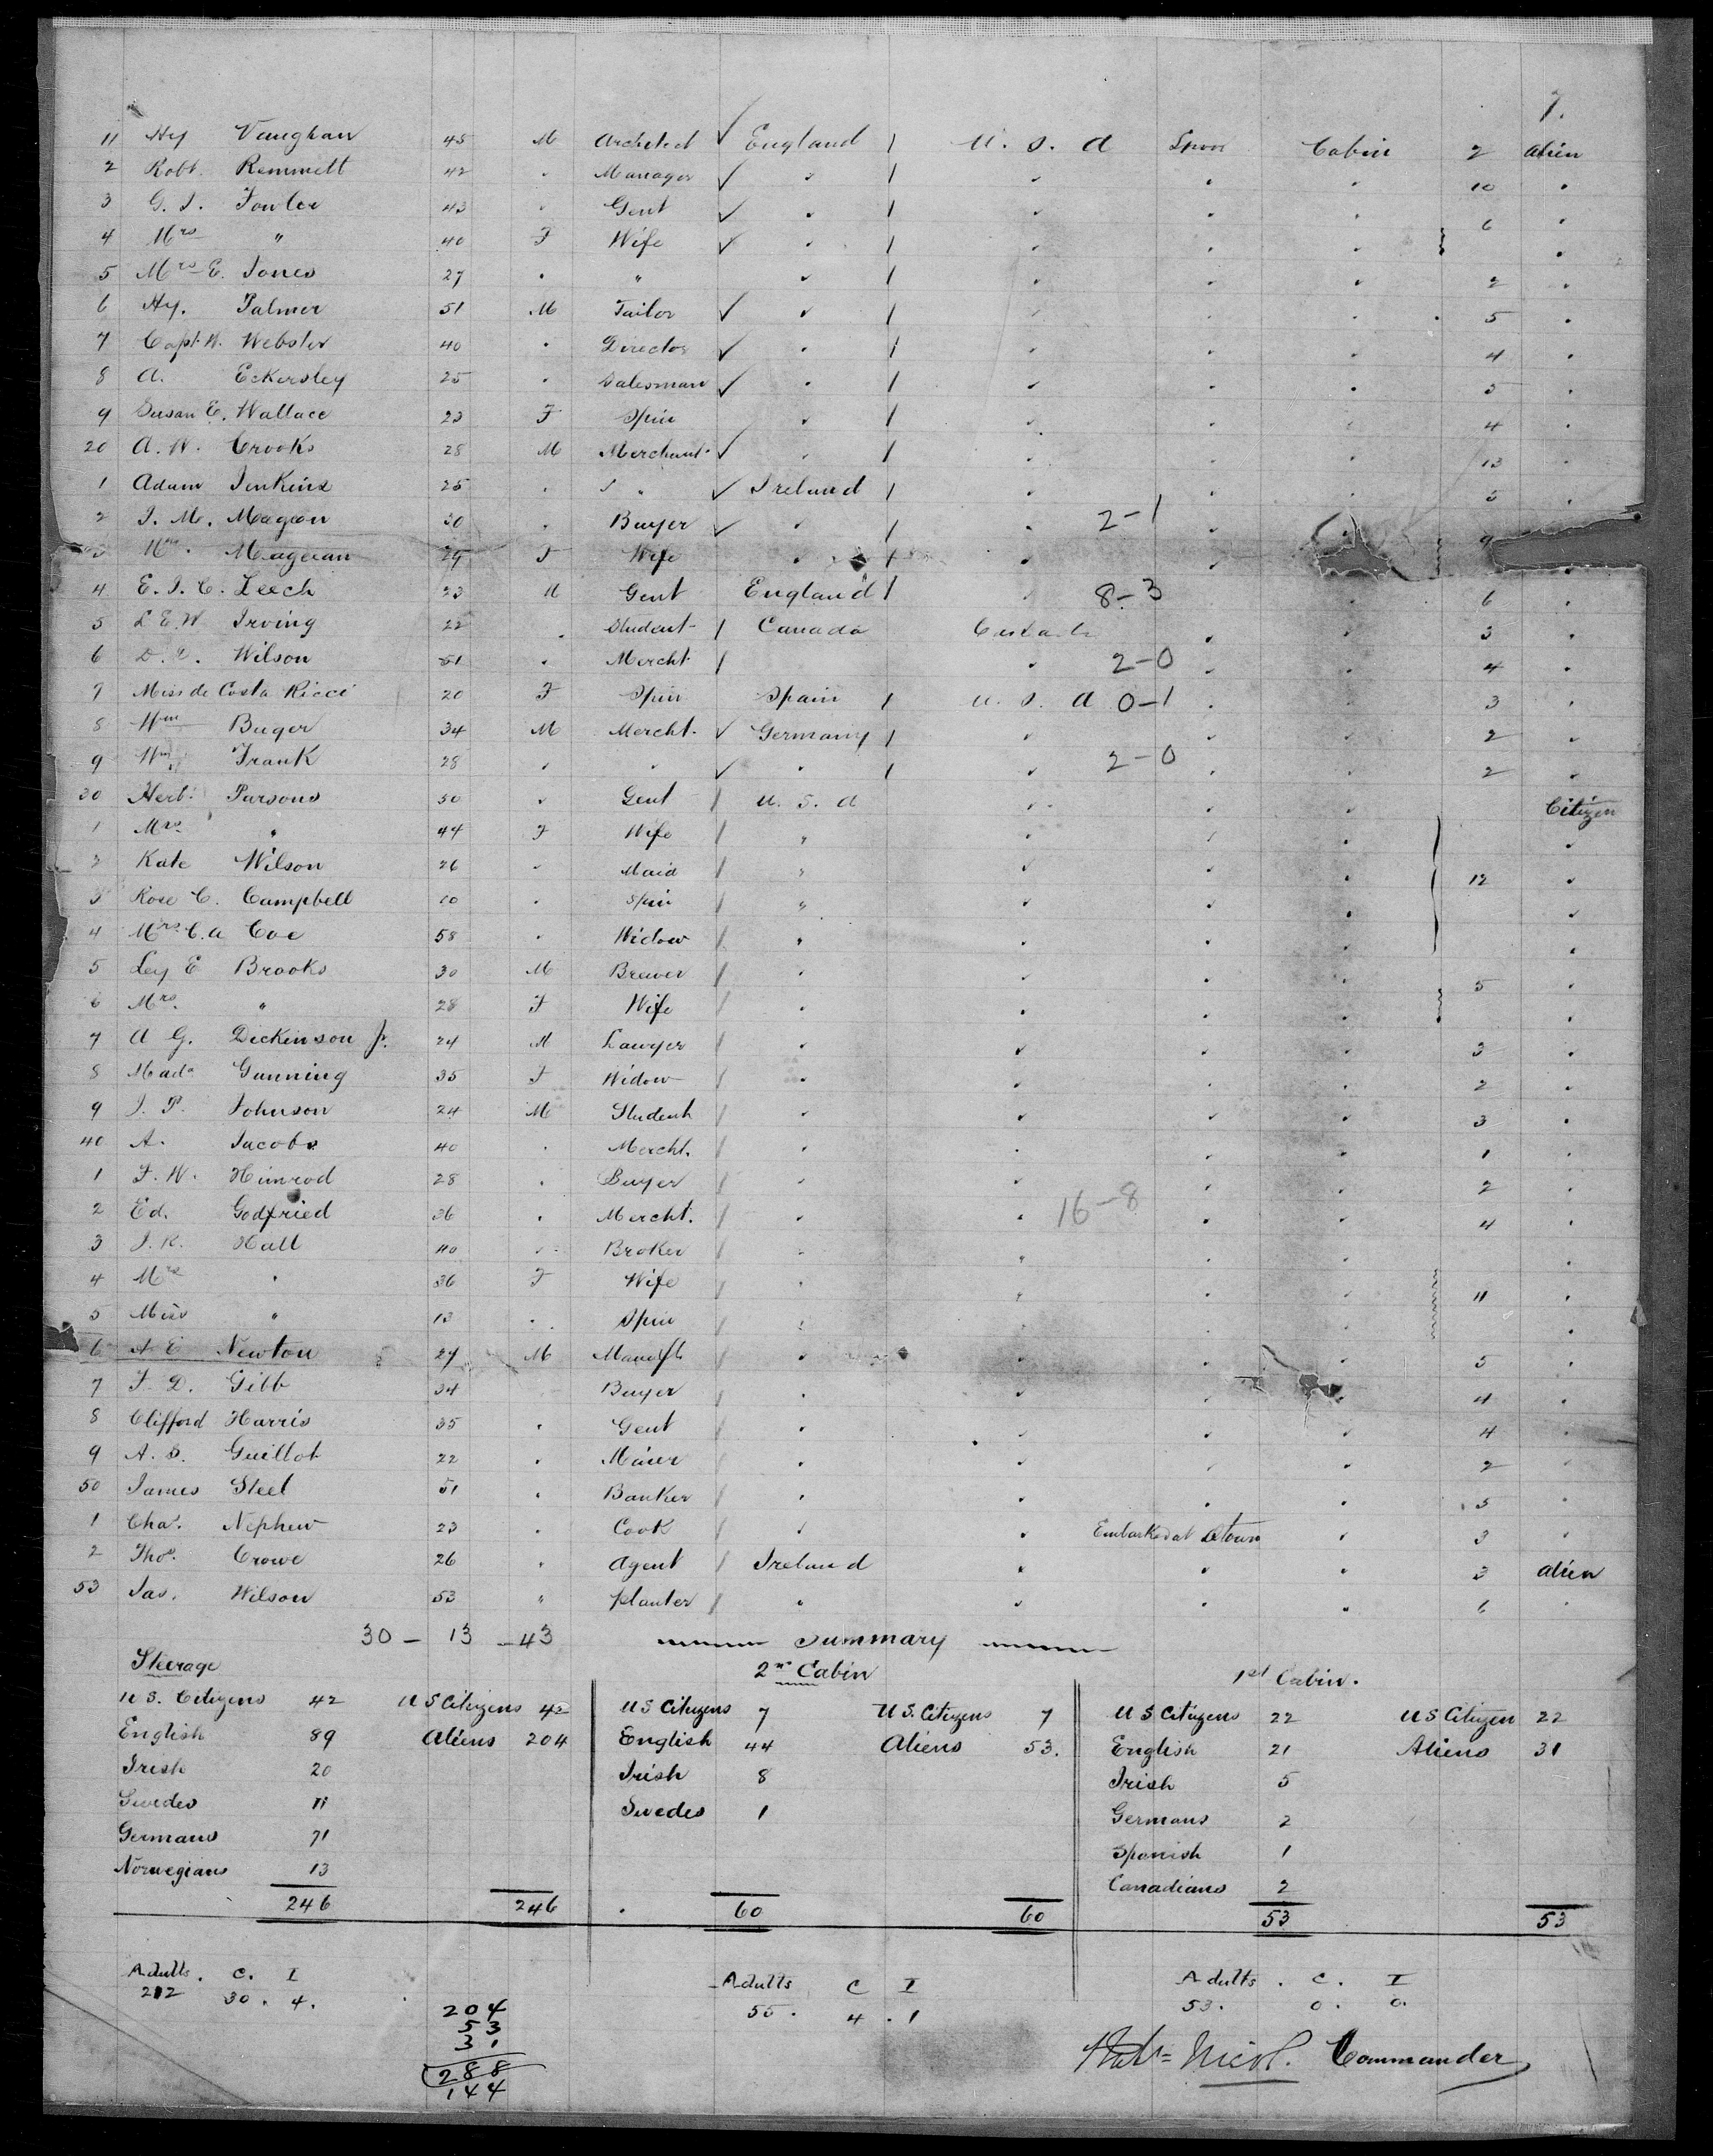 7.
11 Hy Vaughan 45 M Architect ✓ England / U. S. A Lpool Cabin 2 Alien
2 Robt. Remmett 42 " Manager ✓ " / " " " 10 "
3 G. J. Fowler 43 " Gent ✓ " / " " " 6 "
4 Mrs " 40 F Wife ✓ " / " " " "
5 Mrs E. Jones 27 " " " / " " " 2 "
6 Hy. Palmer 51 M Tailor ✓ " / " " " 5 "
7 Capt. W. Webster 40 " Director ✓ " / " " " 4 "
8 A. Eckersley 25 " Salesman ✓ " / " " " 5 "
9 Susan E. Wallace 23 F Spin " / " " " 4 "
20 A. W. Crooks 28 M Merchant ✓ " / " " " 13 "
1 Adam Jenkins 25 " " ✓ Ireland / " " " 5 "
2 J. M. Magean 30 " Buyer ✓ " / " 2-1 " " 9
3 Mrs. Magean 29 F Wife " / " " "
4 E. J. C. Leech 23 M Gent England / " 8-3 " 6 "
5 L E. W Irving 22 " Student / Canada Canada " " 3 "
6 D. Wilson 51 " Mercht / " 2-0 " " 4 "
7 Miss de Costa Ricci 20 F Spin Spain / U. S. A 0-1 " " 3 "
8 Wm Buger 34 M Mercht. ✓ Germany / " " " 2 "
9 Wm Frank 28 " " ✓ " / " 2-0 " " 2 "
30 Herbt. Parsons 50 " Gent / U. S. A " " " Citizen
1 Mrs " 44 F Wife / " " " " "
2 Kate Wilson 26 " Maid / " " " " 12 "
3 Rose C. Campbell 10 " Spin / " " " " "
4 Mrs C. A Coe 58 " Widow / " " " " "
5 Ley E Brooks 30 M Brewer / " " " " 5 "
6 Mrs. " 28 F Wife / " " " " "
7 A G. Dickinson Jr. 24 M Lawyer / " " " " 3 "
8 Mada Gunning 35 F Widow / " " " " 2 "
9 J. P. Johnson 24 M Student / " " " " 3 "
40 A. Jacobs 40 " Mercht. / " " " " 1 "
1 F. W. Himrod 28 " Buyer / " " " " 2 "
2 Ed. Godfried 36 " Mercht. / " " 16-8 " " 4 "
3 J. K. Hall 40 " Broker / " " " " "
4 Mrs " 36 F Wife / " " " " 11 "
5 Miss " 13 " Spin / " " " " "
6 A E Newton 27 M Manuft / " " " " 5 "
7 F. D. Gibb 34 Buyer / " " " " 4 "
8 Clifford Harris 35 " Gent / " " " " 4 "
9 A. S. Guillot 22 " Miner / " " " " 2 "
50 James Steel 51 " Banker / " " " " 5 "
1 Chas. Nephew 23 " Cook / " " Embarked at Qtown " 3 "
2 Thos. Crowe 26 " Agent / Ireland " " " 3 Alien
53 Jas. Wilson 53 " Planter / " " " " 6 "
30 - 13 - 43 Summary
Steerage 2nd Cabin 1st Cabin.
U S. Citizens 42 U S Citizens 42 U S Citizens 7 U S. Citizens 7 U S Citizens 22 U S Citizen 22
English 89 Aliens 204 English 44 Aliens 53. English 21 Aliens 31
Irish 20 Irish 8 Irish 5
Swedes 11 Swedes 1 Germans 2
Germans 71 Spanish 1
Norwegians 13 Canadians 2
246 246 60 60 53 53
Adults. C. I Adults C I Adults. C. I
212 30. 4. 55. 4. 1 53. 0. 0.
204
53
31
288
144
Nicol. Commander